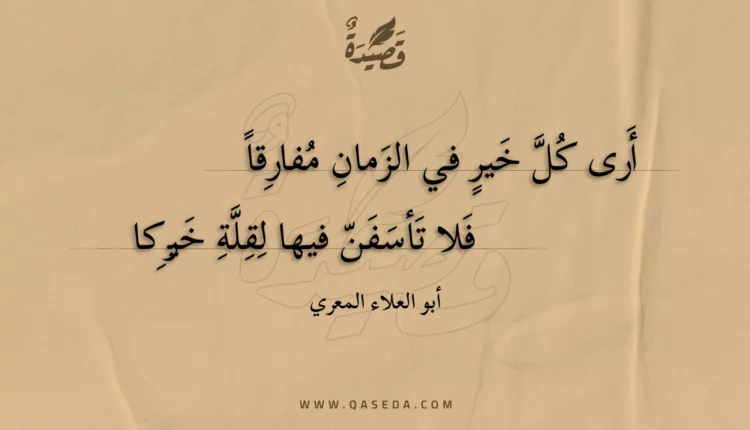 قَصِيدَةٌ
أَرى كُلَّ خَيرٍ في الزَمانِ مُفارِقاً
فَلا تَأسَفَنّ فيها لِقِلَّةِ خَيرِكا
أبو العلاء المعري
WWW.QASEDA.COM